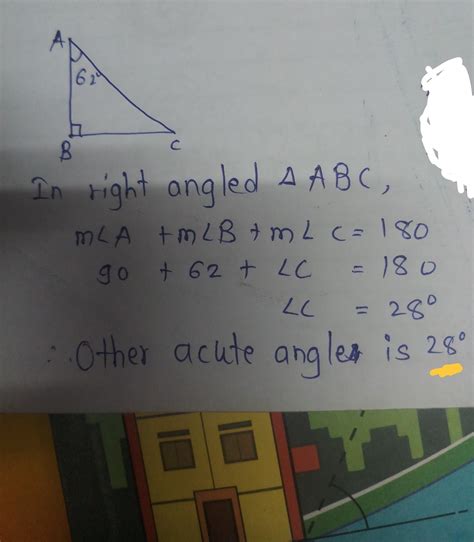 A
62°
B
C
In right angled △ ABC,
m∠A + m∠B + m∠ C = 180
90 + 62 + ∠C = 180
∠C = 28°
∴ Other acute angle is 28°